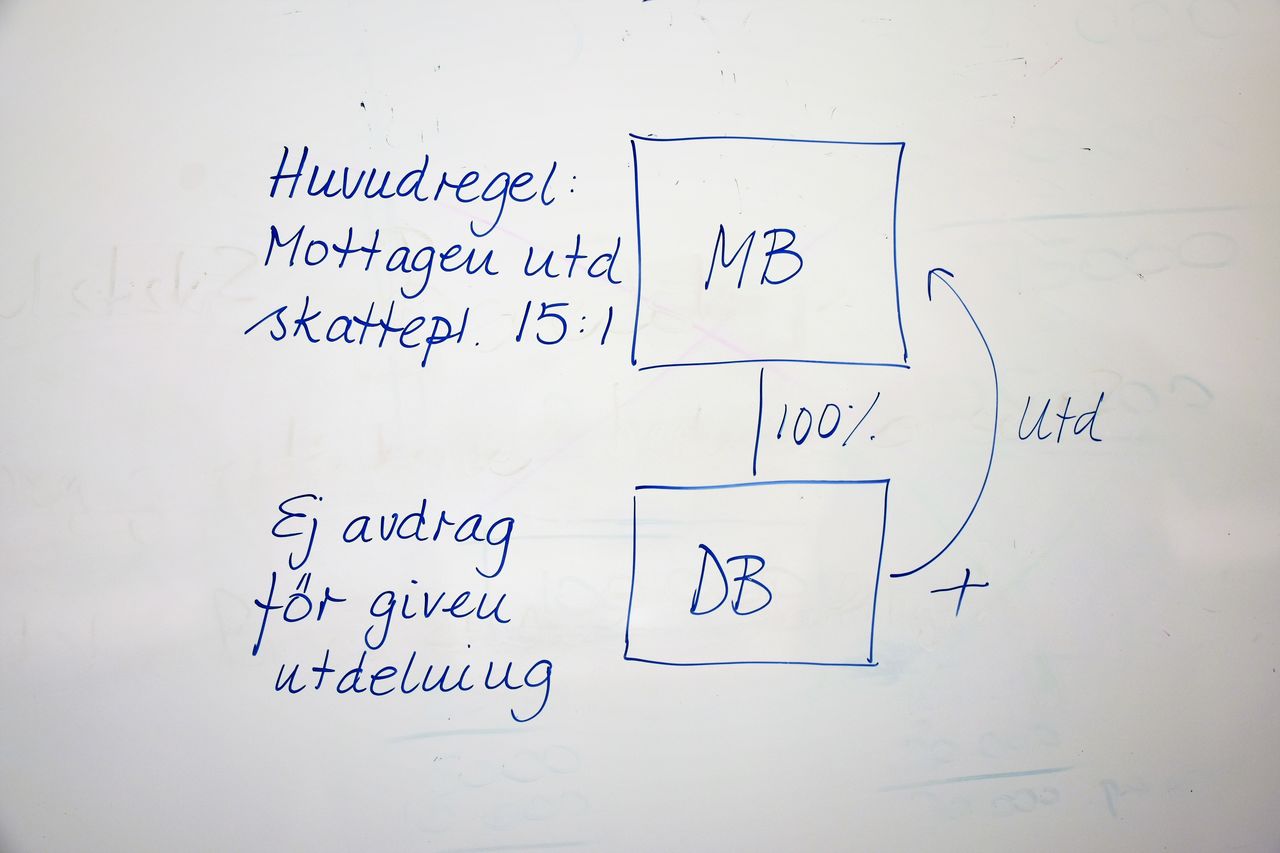 Huvudregel:
Mottagen utd
skattepl. 15:1
MB
100%
Utd
Ej avdrag
för given
utdelning
DB
+